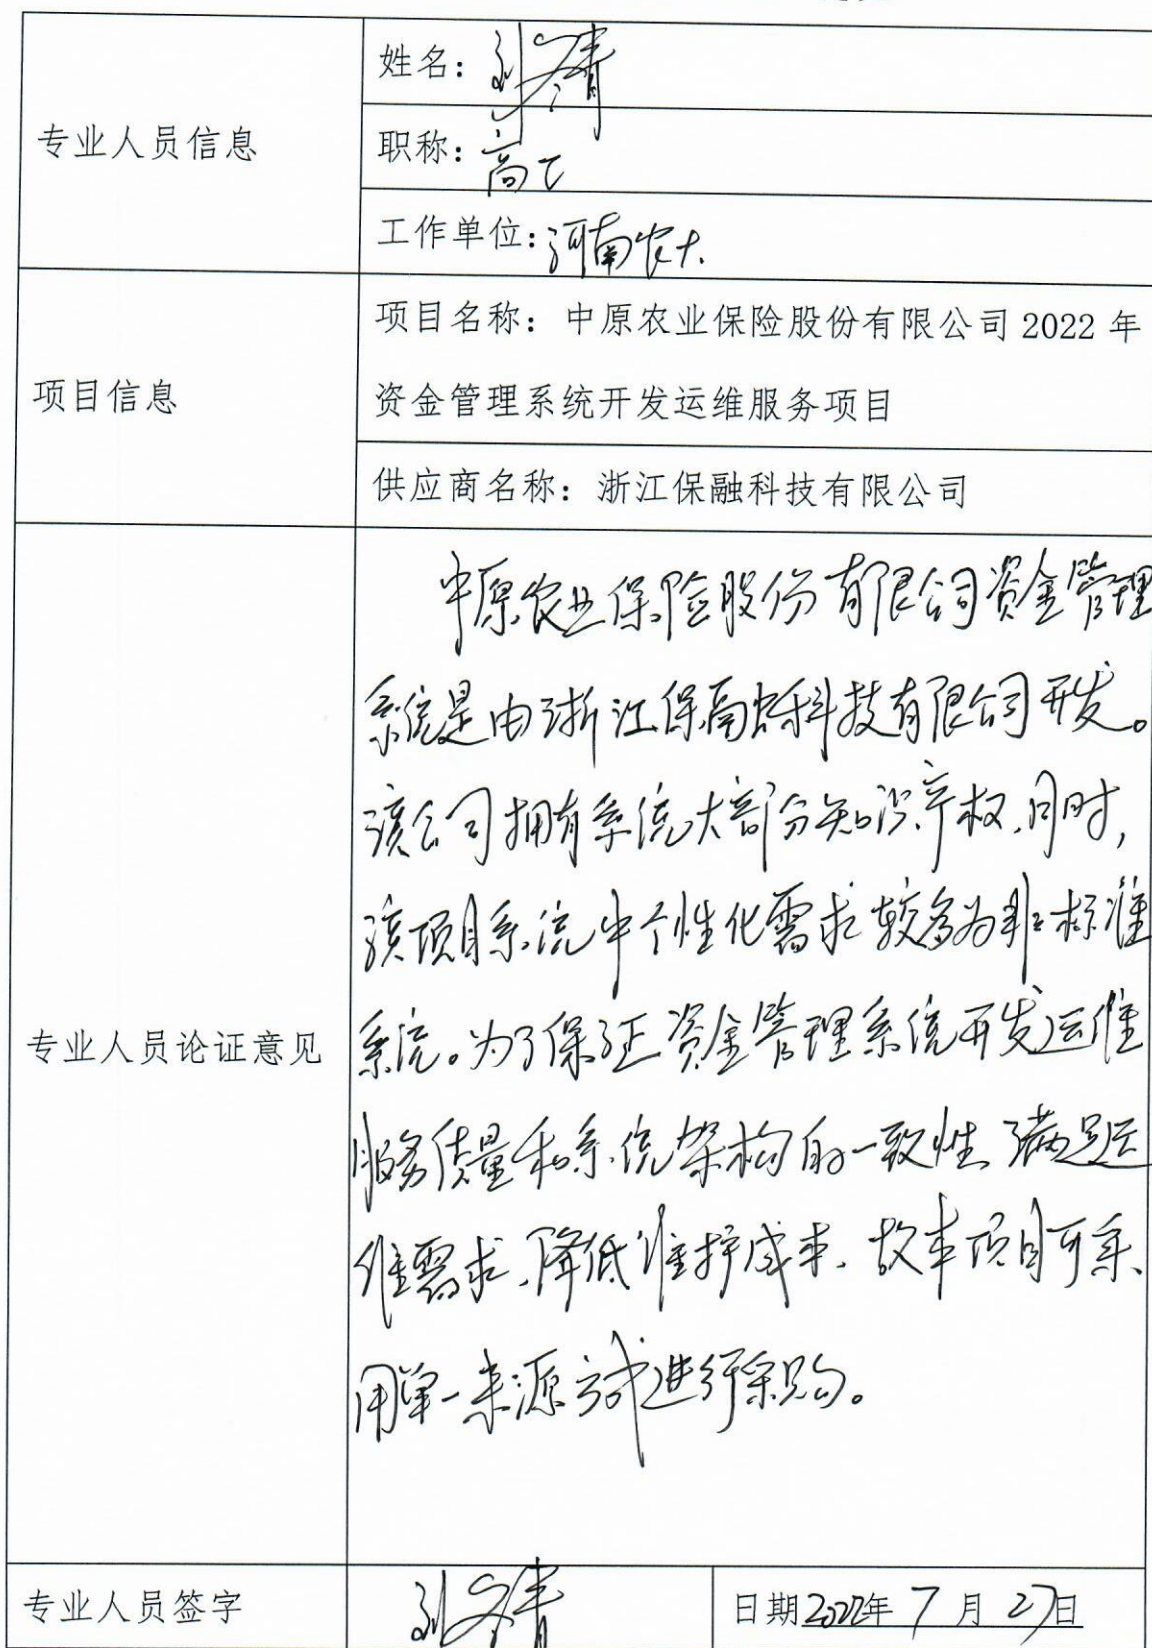 专业人员信息
姓名：刘
职称：高工
工作单位：河南农大
项目信息
项目名称：中原农业保险股份有限公司 2022 年
资金管理系统开发运维服务项目
供应商名称：浙江保融科技有限公司
专业人员论证意见
中原农业保险股份有限公司资金管理
系统是由浙江保融科技有限公司开发。
该公司拥有系统大部分知识产权，同时，
该项目系统中个性化需求较多为非标准
系统。为了保证资金管理系统开发运维
服务质量和系统架构的一致性、满足运
维需求、降低维护成本，故本项目可采
用单一来源方式进行采购。
专业人员签字
刘
日期2022年 7 月 27日